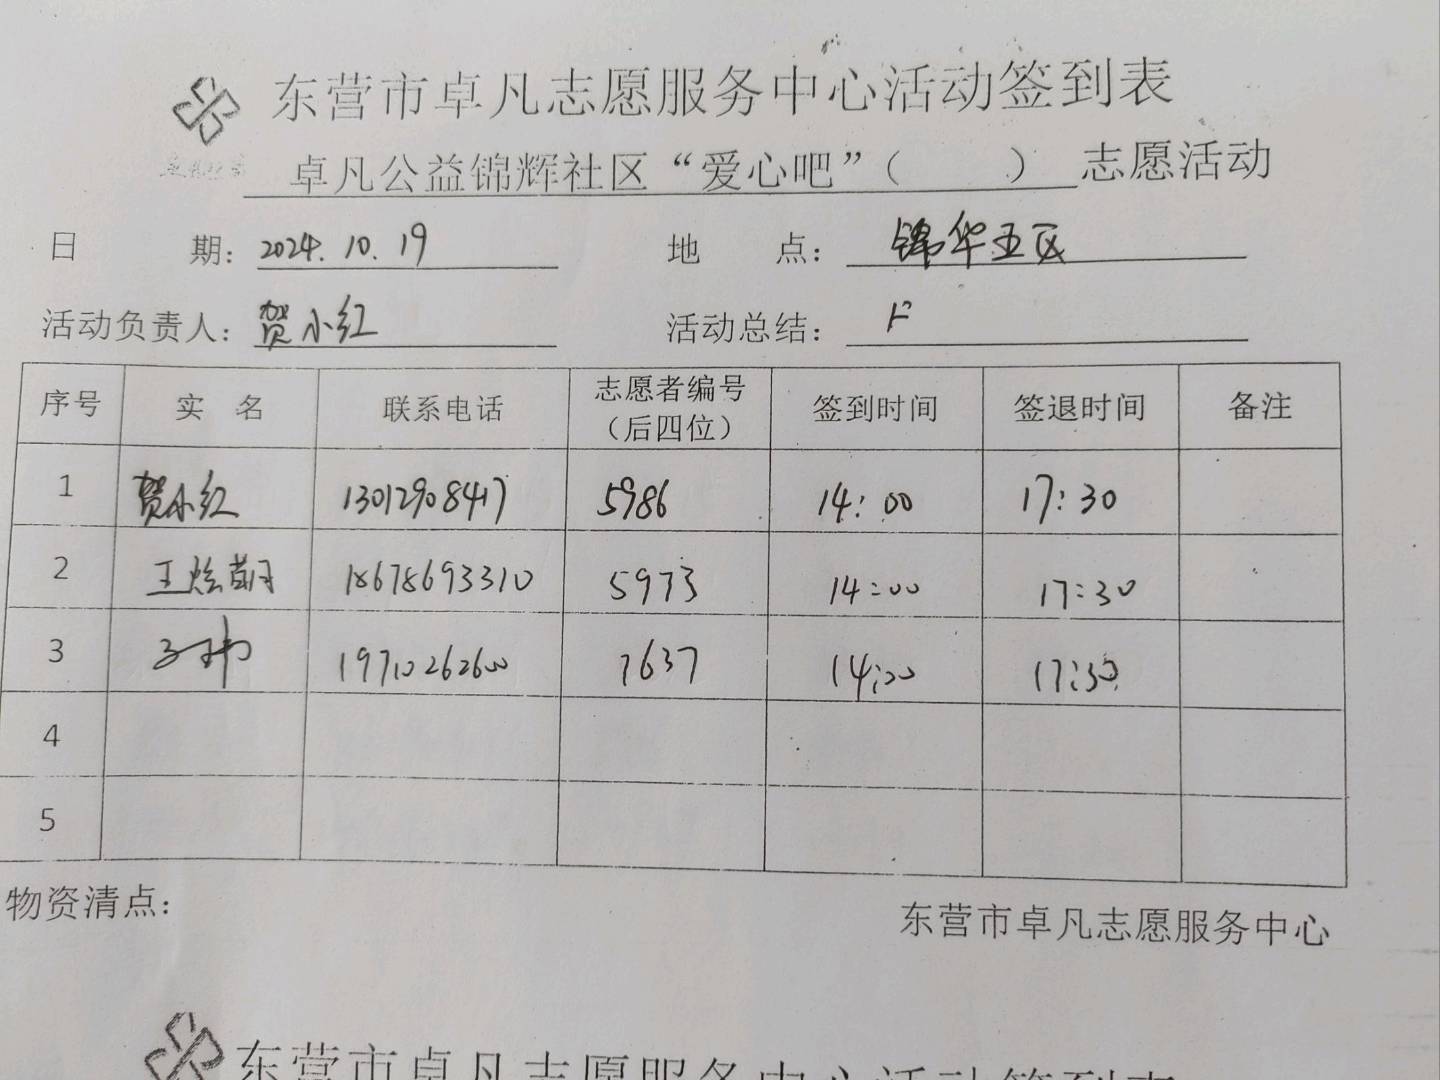 东营市卓凡志愿服务中心活动签到表
卓凡公益锦辉社区“爱心吧”（ ）志愿活动
日 期：2024.10.19 地 点：锦华五区
活动负责人：贺小红 活动总结：
序号 实 名 联系电话 志愿者编号（后四位） 签到时间 签退时间 备注
1 贺小红 13012908417 5986 14:00 17:30
2 王 18678693310 5973 14:00 17:30
3 19710262600 7637 14:00 17:30
4
5
物资清点：
东营市卓凡志愿服务中心
东营市卓凡志愿服务中心活动签到表